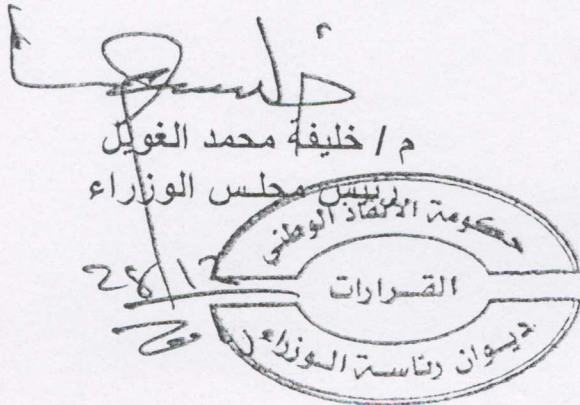 م / خليفة محمد الغويل
رئيس مجلس الوزراء
حكومة الانقاذ الوطني
القرارات
ديوان رئاسة الوزراء
28 12